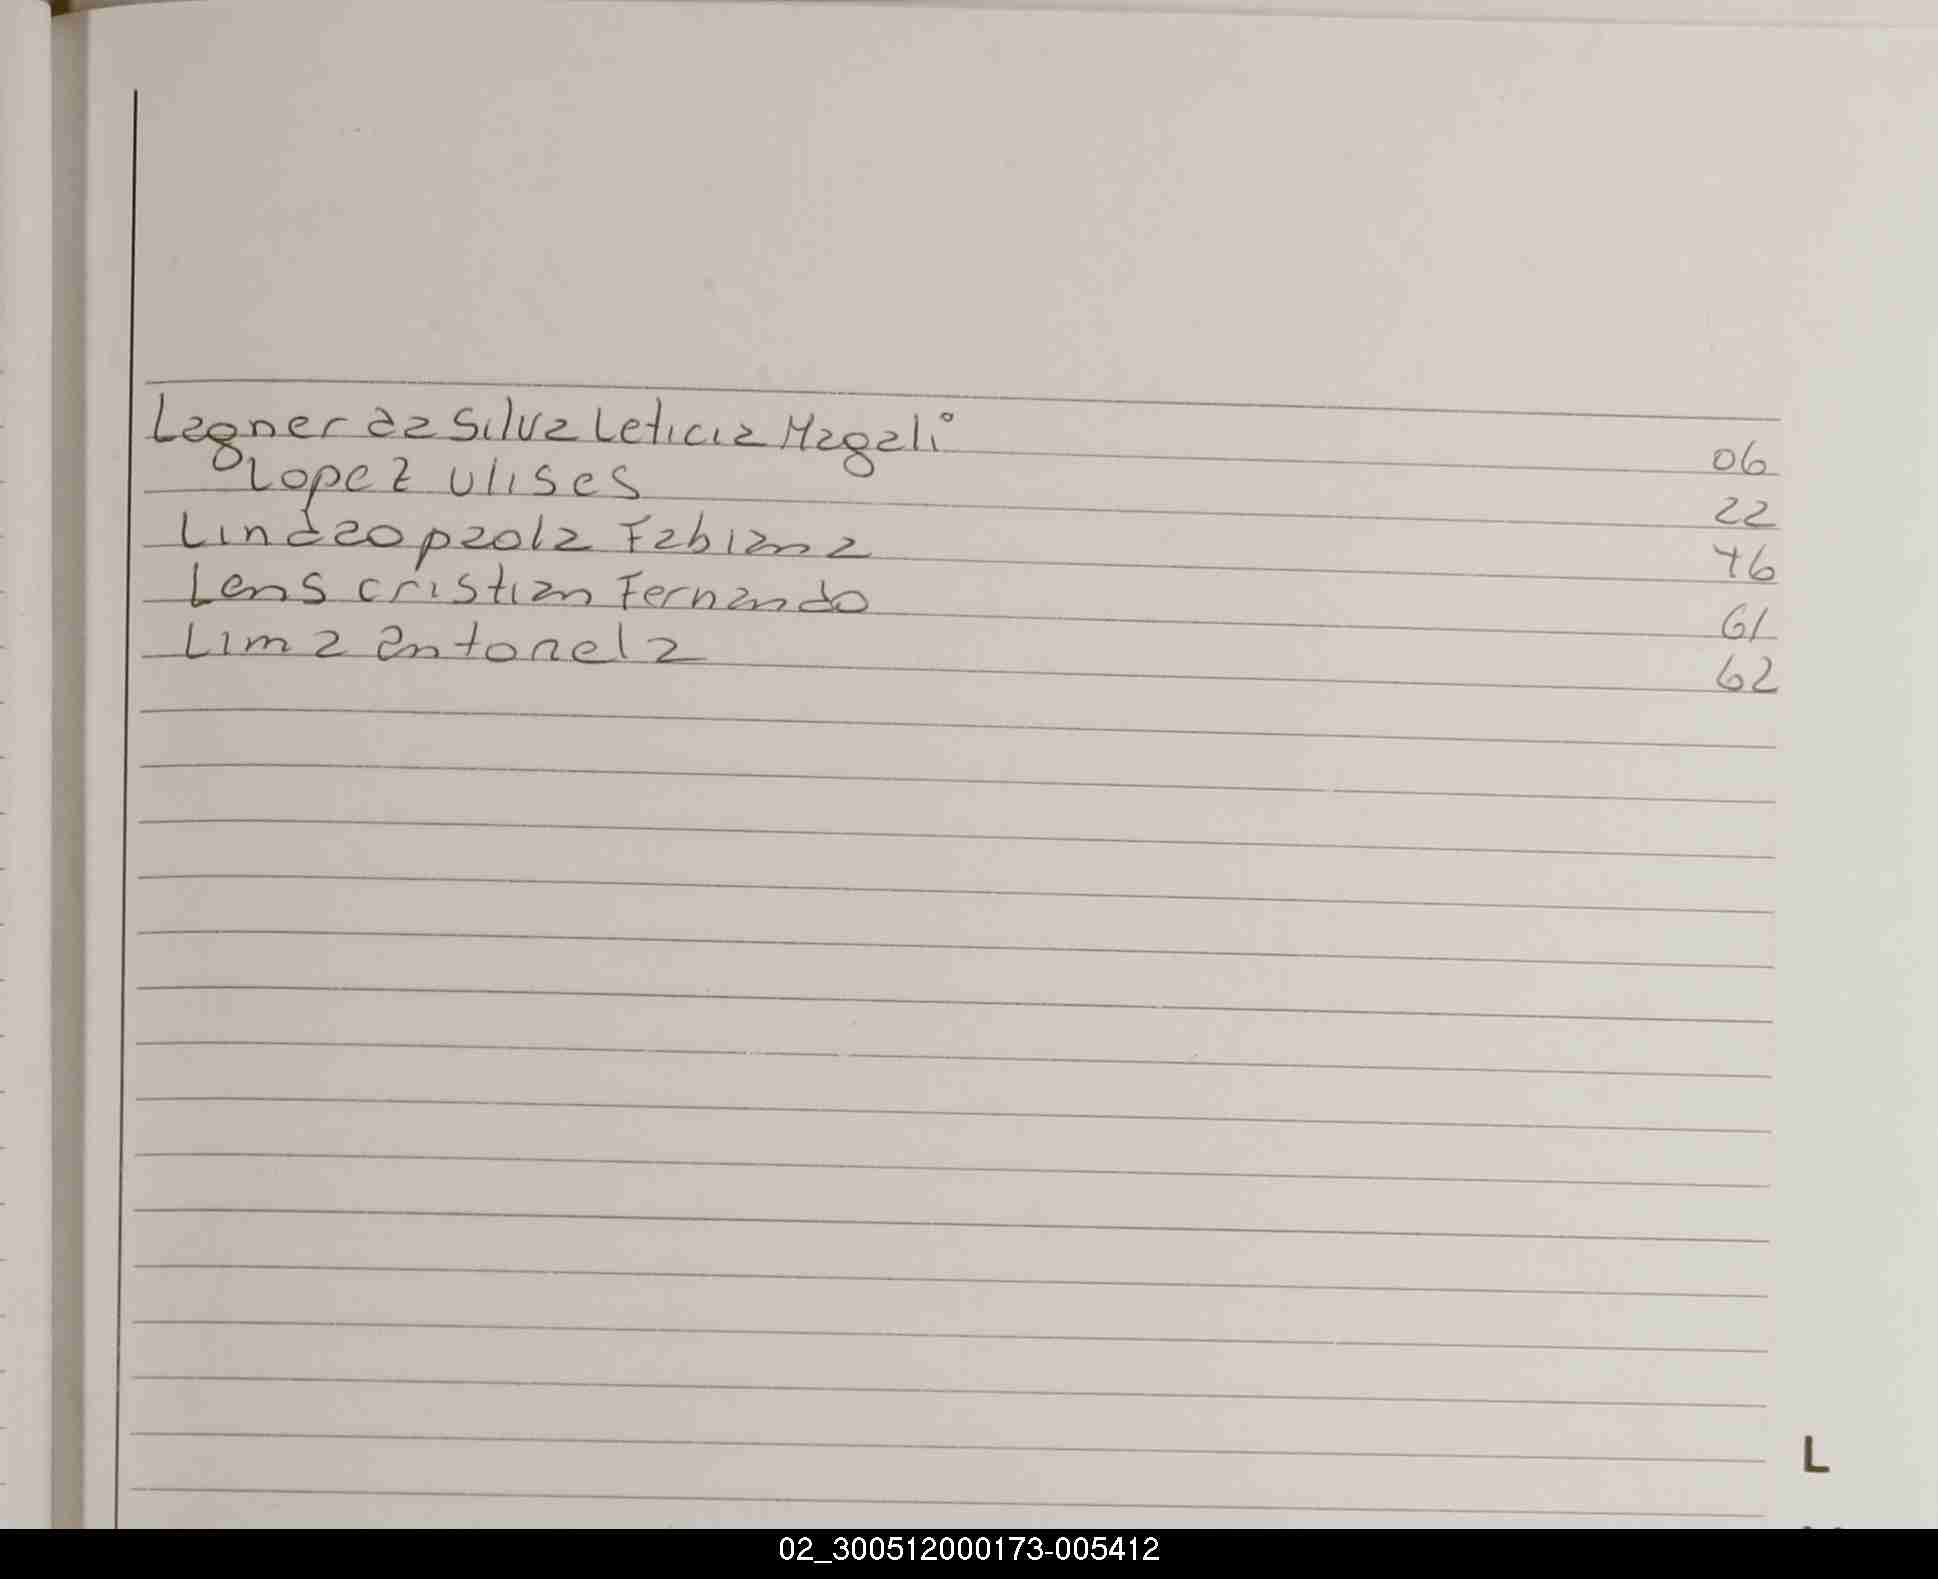 Lagner da Silva Leticia Magali
06
Lopez Ulises
22
Lindao paola Fabiana
46
Lens cristian Fernando
61
Lima antonela
62
L
02_300512000173-005412